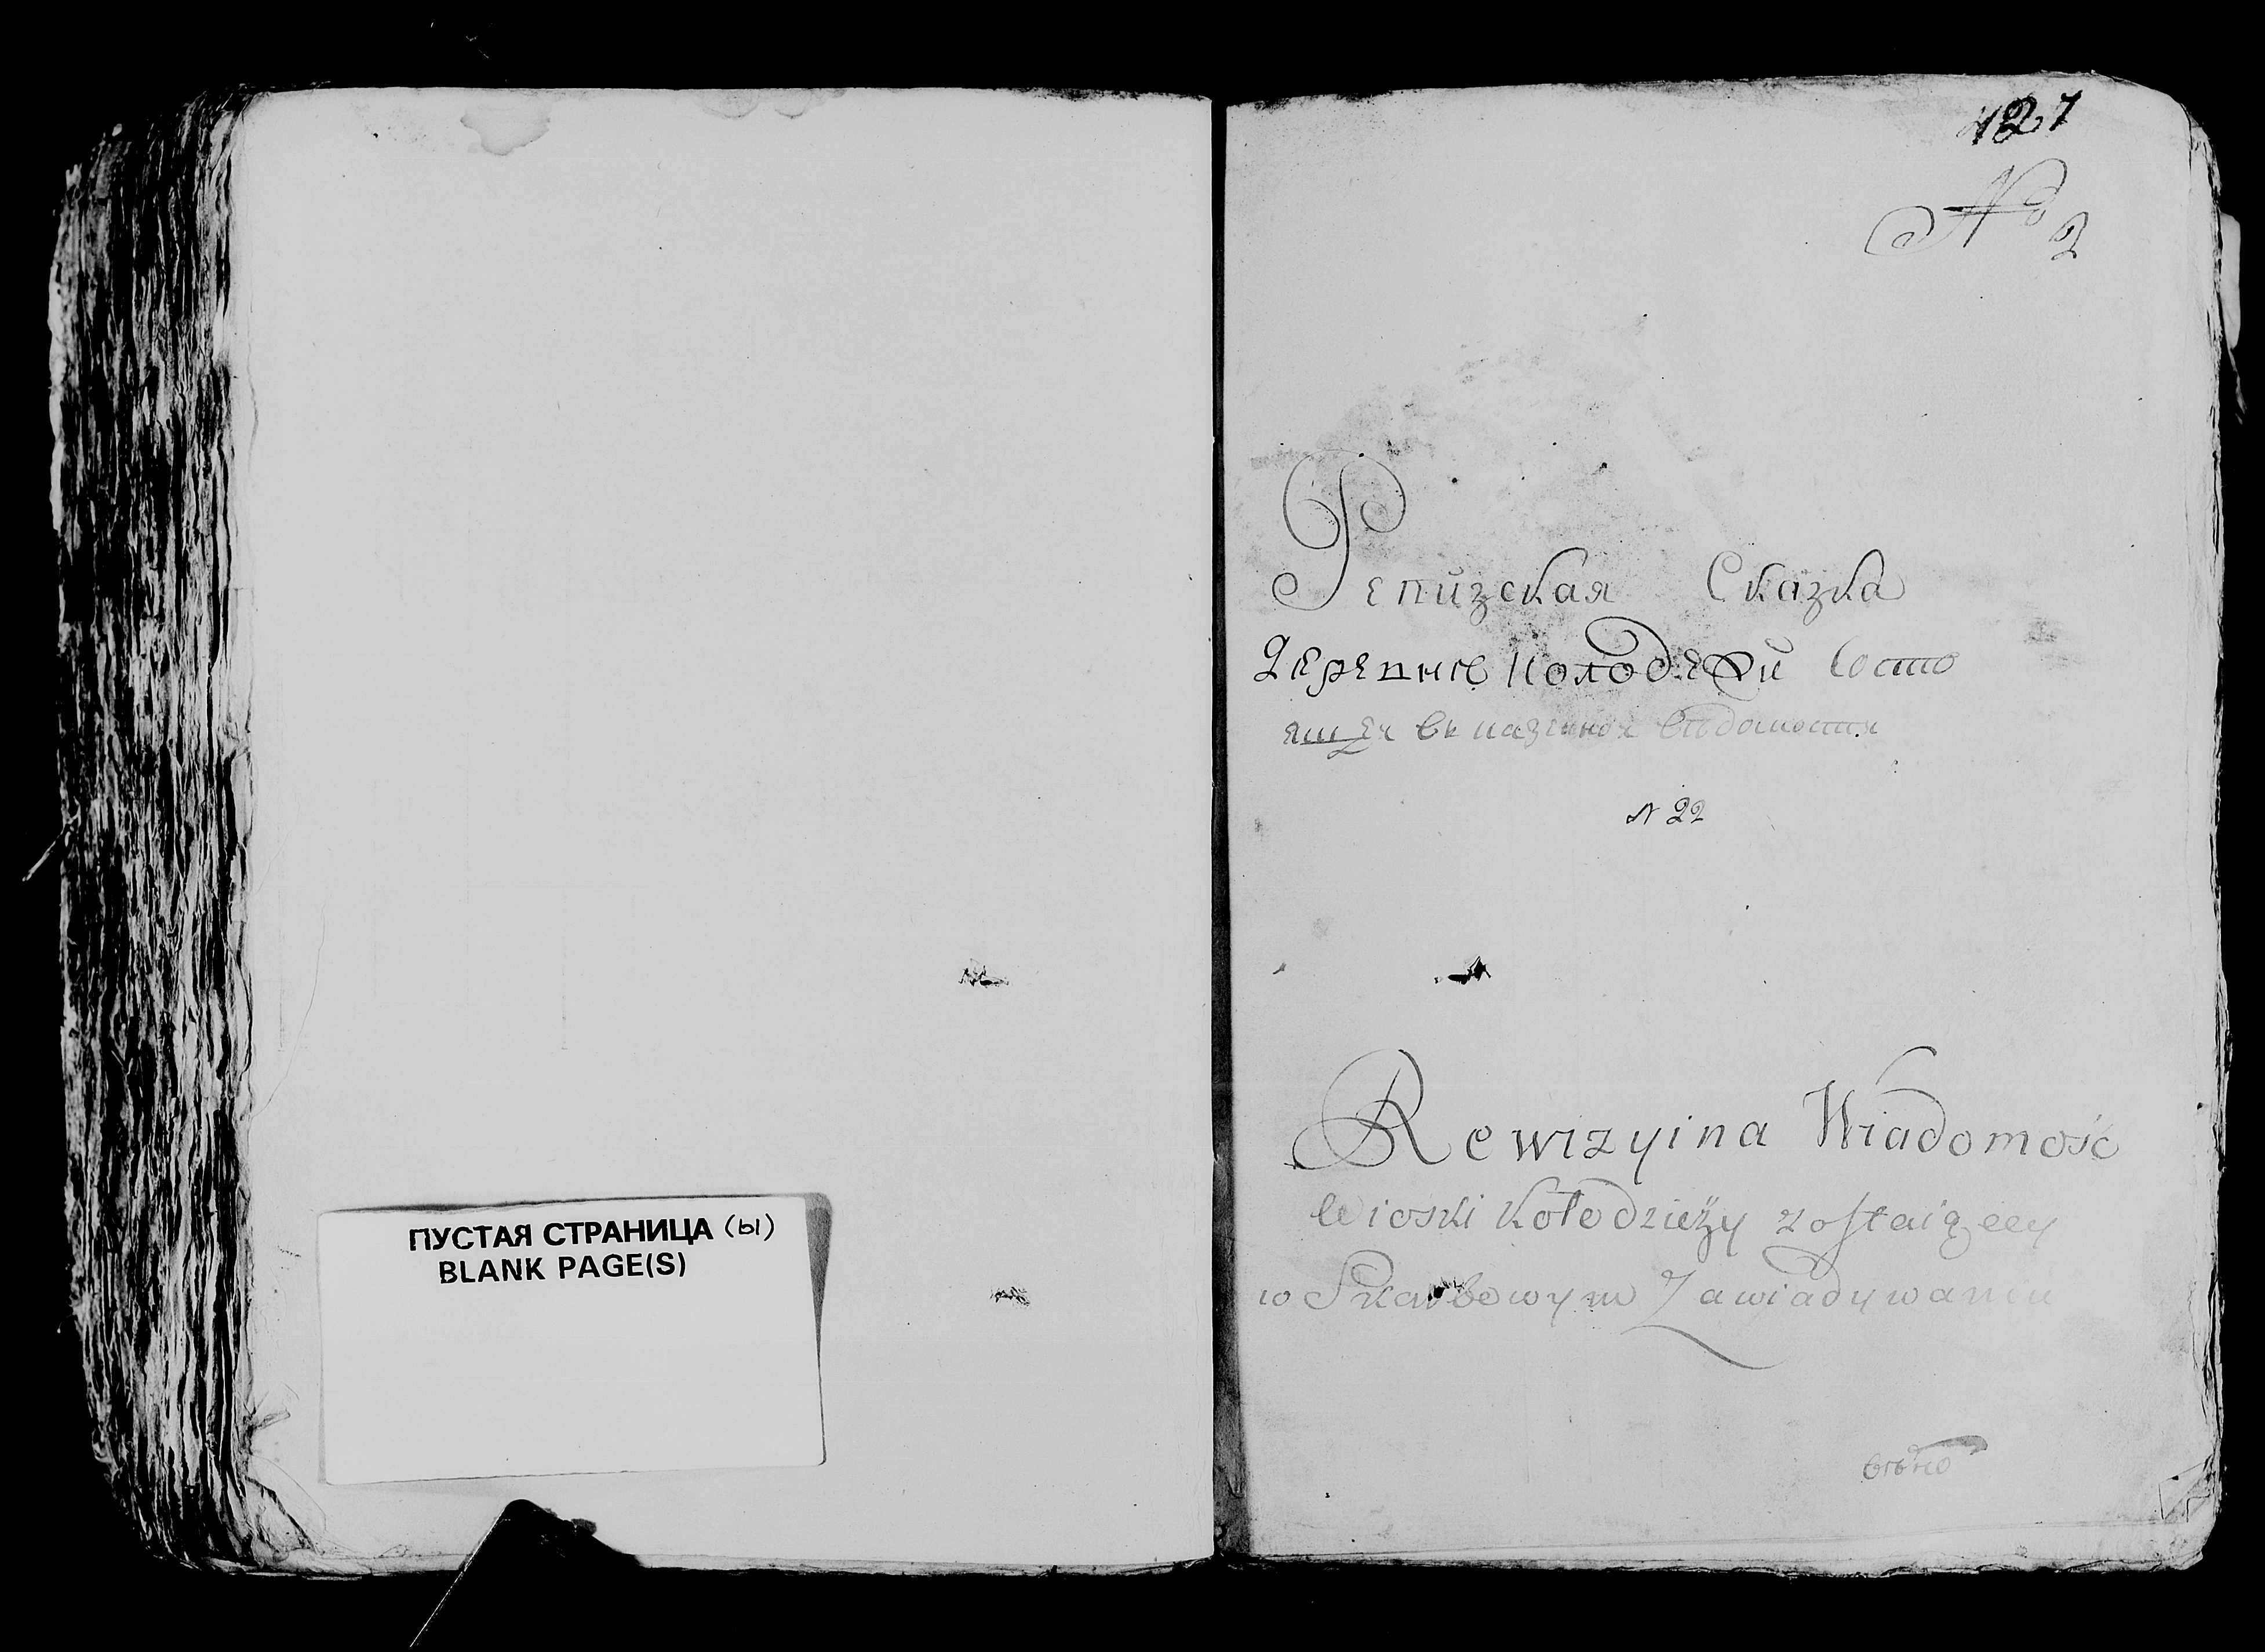 ПУСТАЯ СТРАНИЦА (ы)
BLANK PAGE(S)
421
No 2
Ревизская Сказка
Деревни Колодежи Состо
ящея въ казенной вѣдомости
N 22
Rewizyina Wiadomość
Wioski Kołodzieży zostaiącey
w Skarbowym Zawiadywaniu
вѣрно